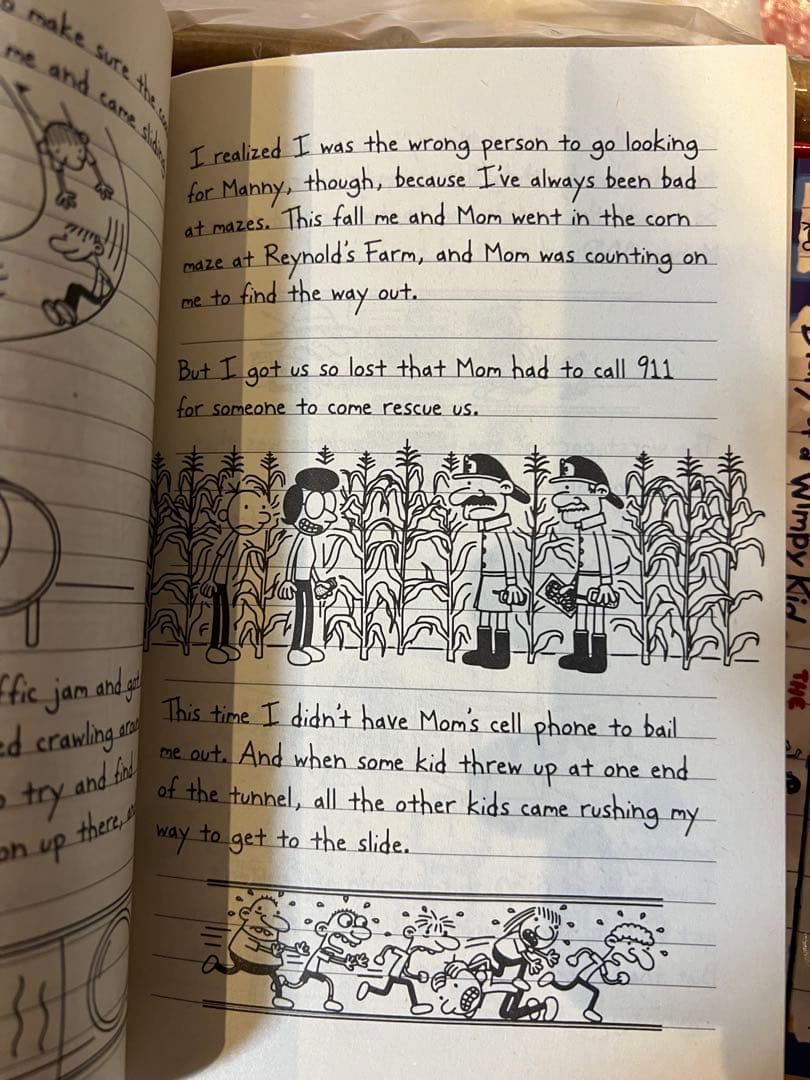 make sure the
me and came sliding
ffic jam and got
ed crawling around
try and find
on up there,
I realized I was the wrong person to go looking
for Manny, though, because I've always been bad
at mazes. This fall me and Mom went in the corn
maze at Reynold's Farm, and Mom was counting on
me to find the way out.
But I got us so lost that Mom had to call 911
for someone to come rescue us.
This time I didn't have Mom's cell phone to bail
me out. And when some kid threw up at one end
of the tunnel, all the other kids came rushing my
way to get to the slide.
Diary of a Wimpy Kid
THE